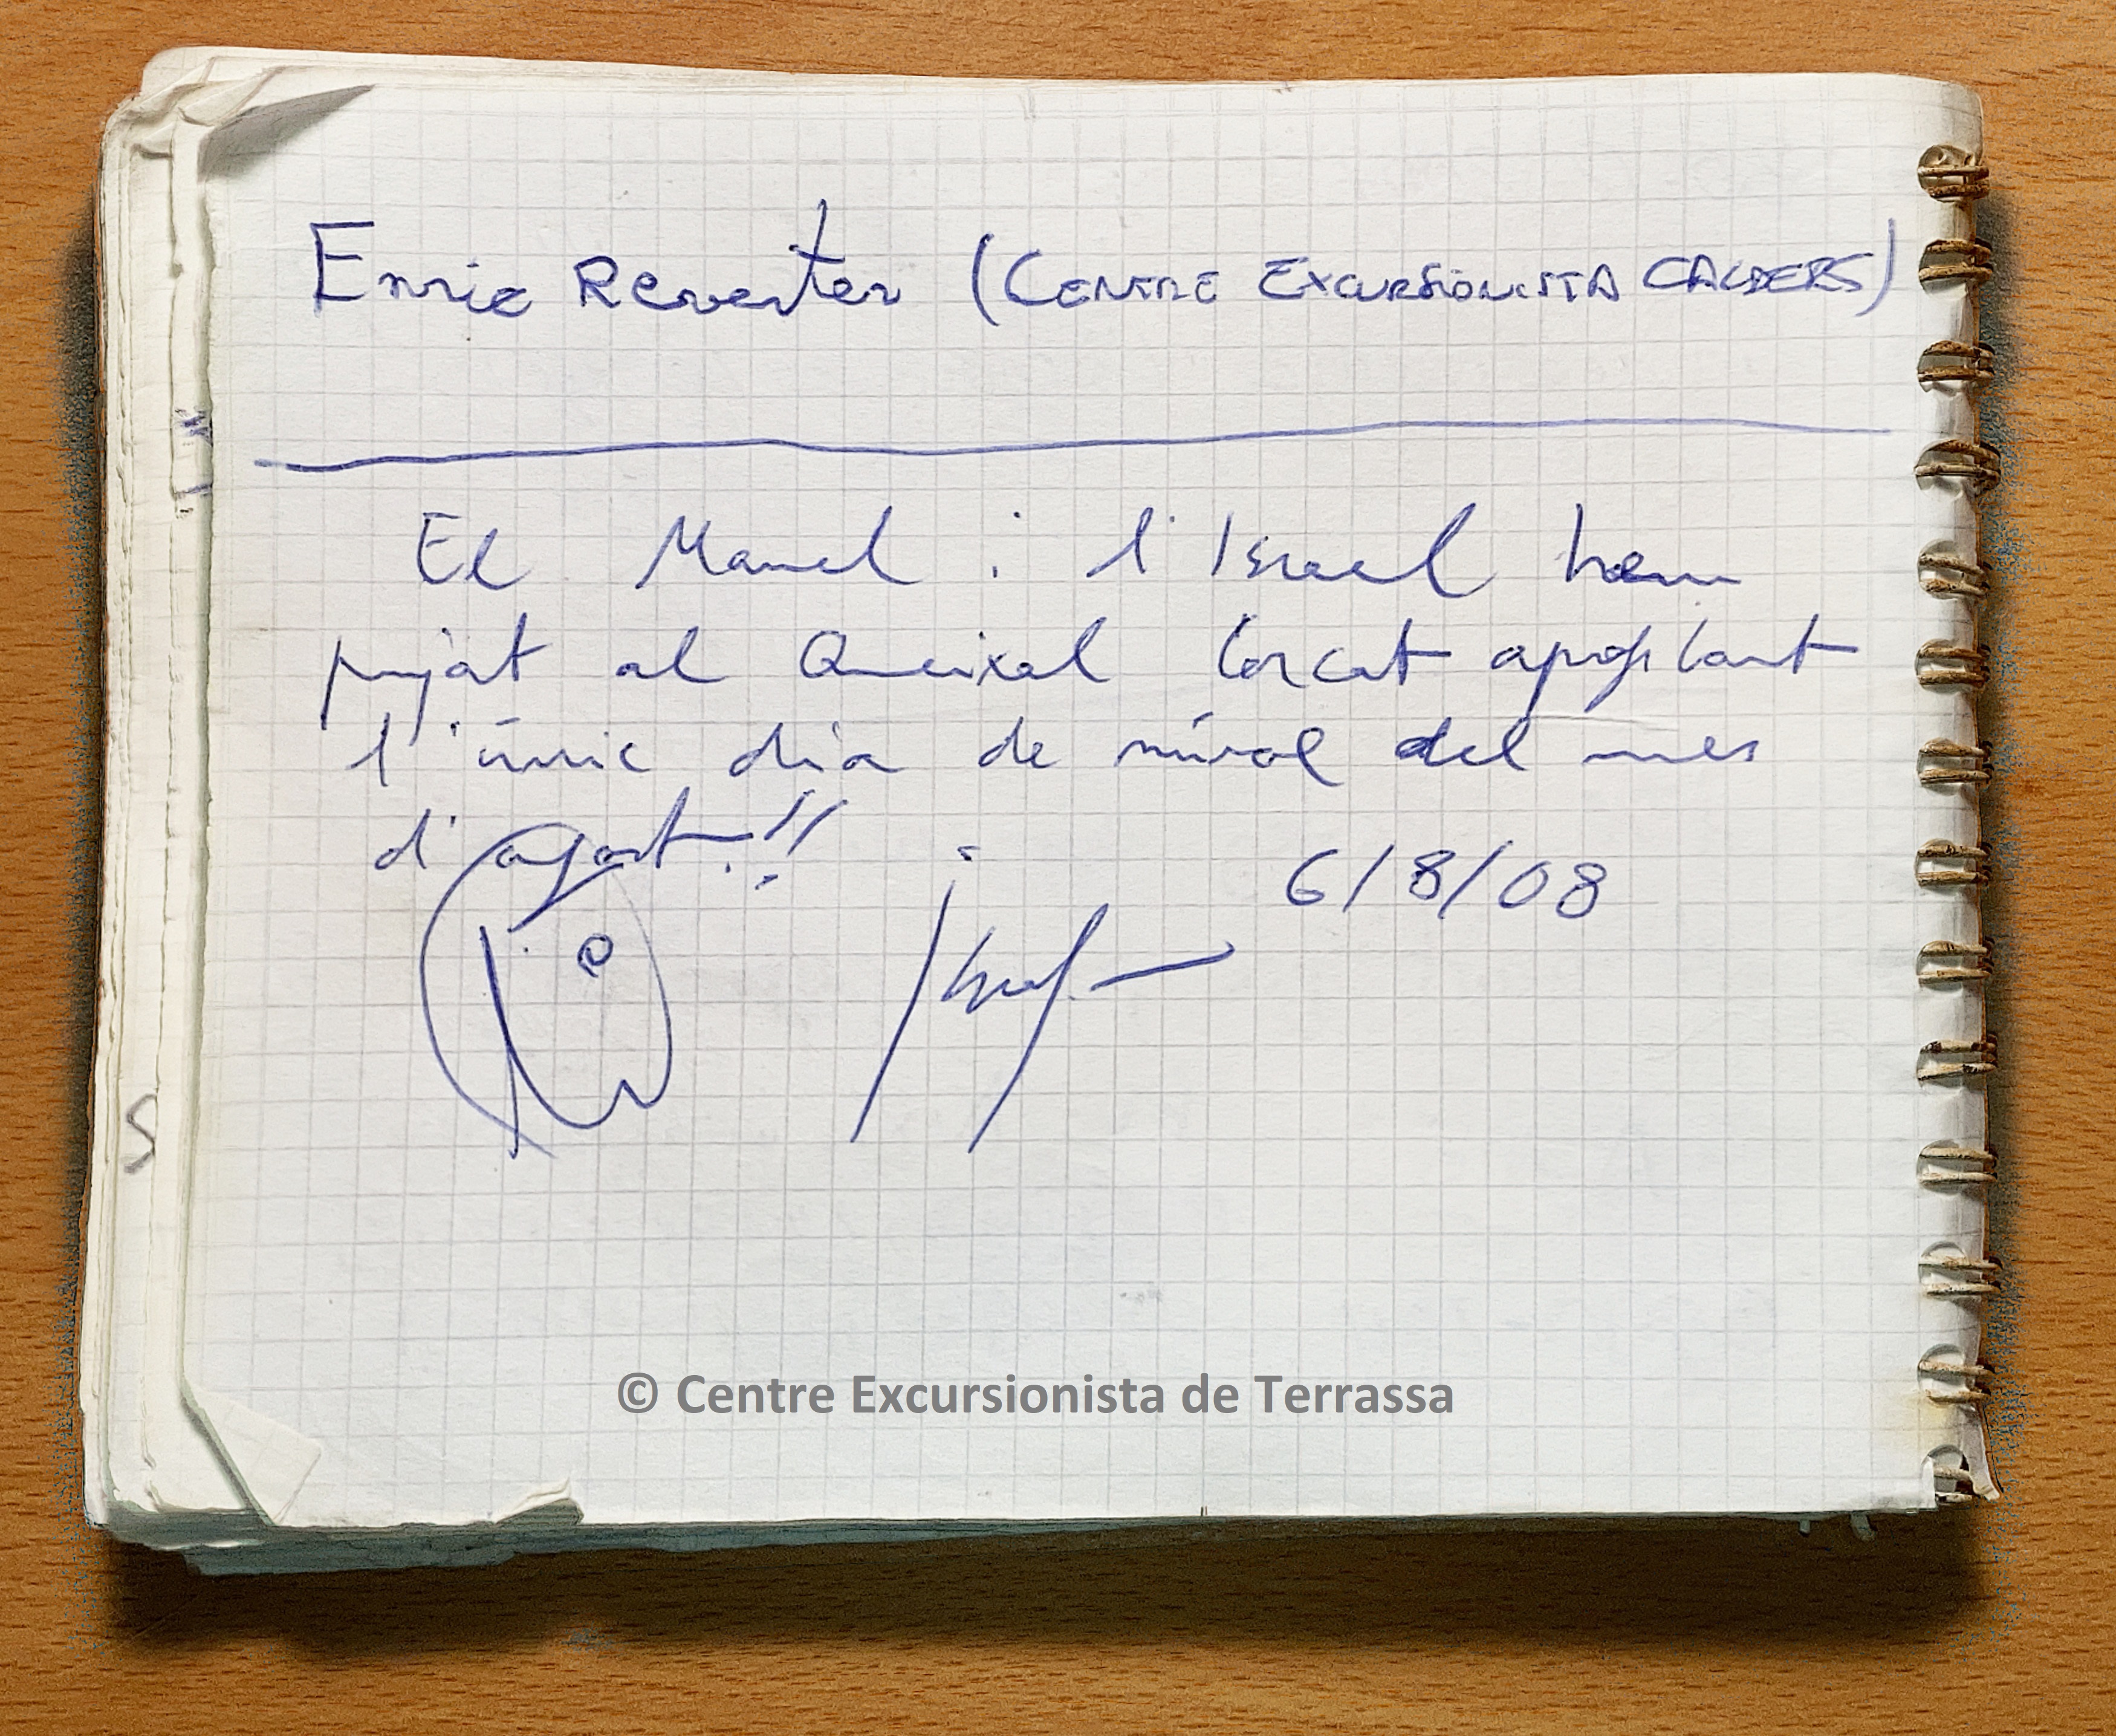 Enric Reverter (CENTRE EXCURSIONISTA CALDERS)
El Manel i l'Israel hem
pujat al Queixal Corcat aprofitant
l'únic dia de núvol del mes
d'agost!!
6/8/08
Israel
S
© Centre Excursionista de Terrassa